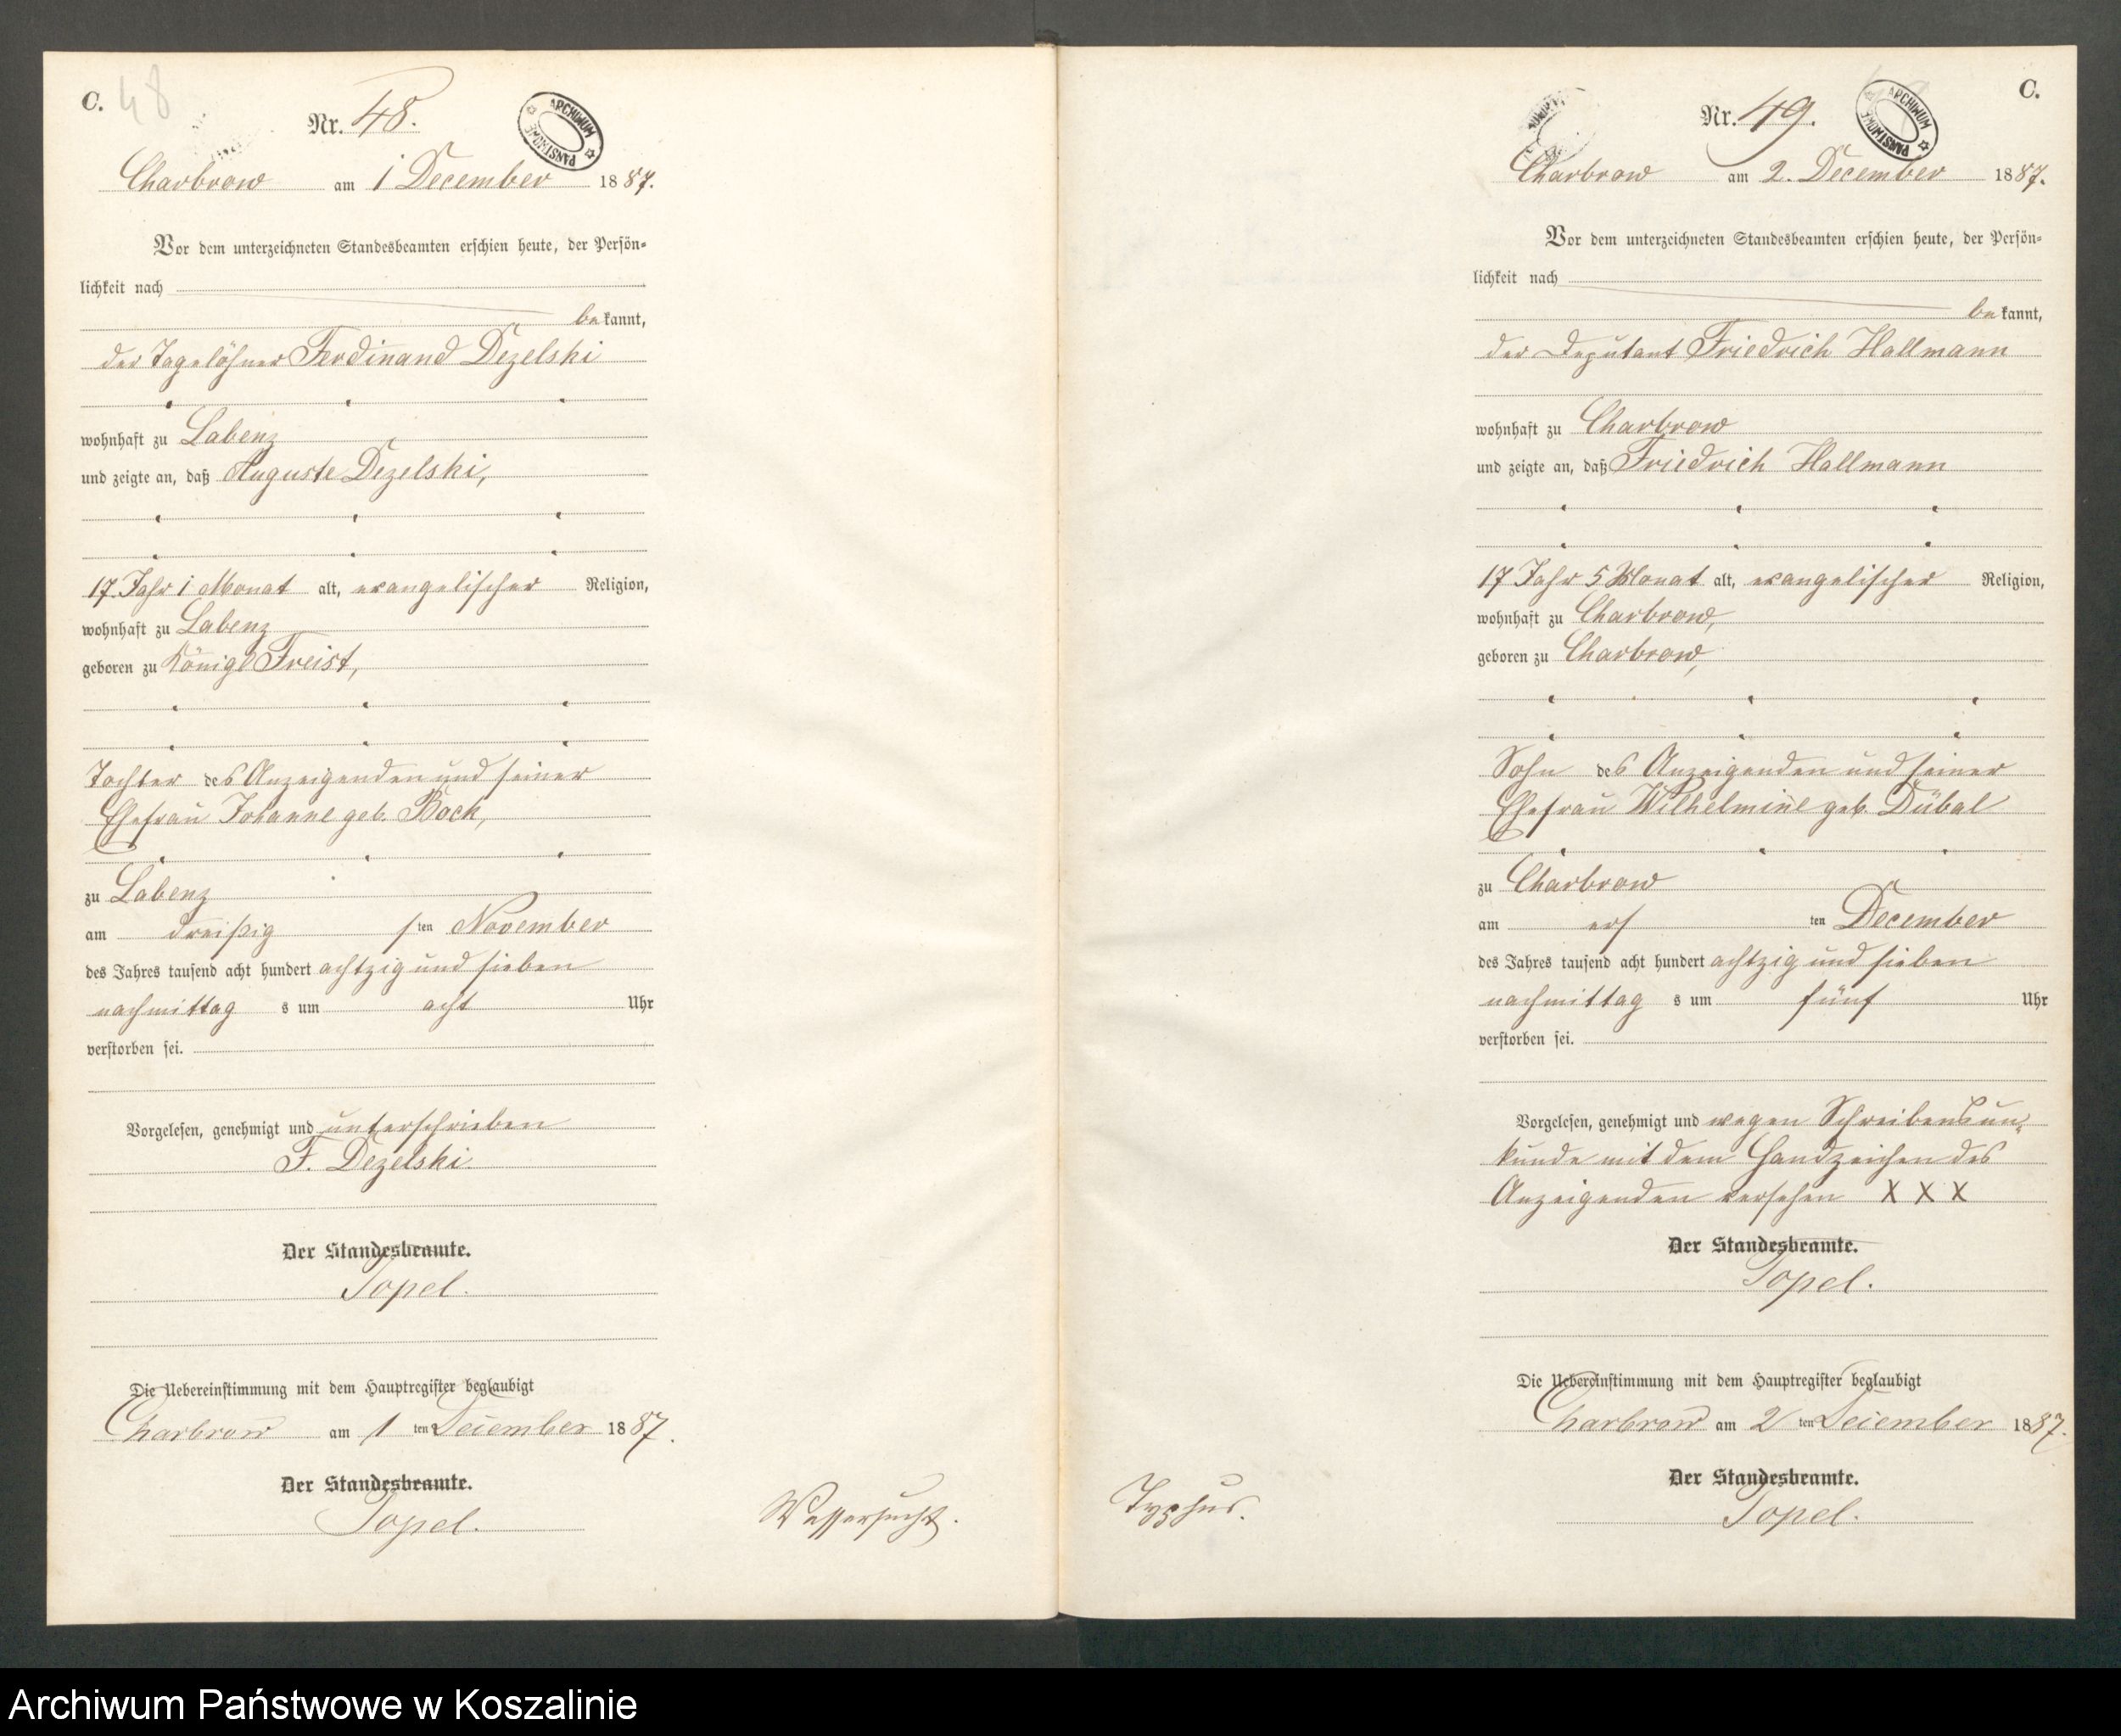 C. 48
Nr. 48.
ARCHIWUM PAŃSTWOWE
Charbrow am 1 December 1887.
Vor dem unterzeichneten Standesbeamten erschien heute, der Persön=
lichkeit nach
bekannt,
der Tagelöhner Ferdinand Dezelski
wohnhaft zu Labenz
und zeigte an, daß Auguste Dezelski,
17 Jahr 1 Monat alt, evangelischer Religion,
wohnhaft zu Labenz
geboren zu Königl Freist,
Tochter des Anzeigenden und seiner
Ehefrau Johanne geb. Bock,
zu Labenz
am dreißigsten November
des Jahres tausend acht hundert achtzig und sieben
nachmittags um acht Uhr
verstorben sei.
Vorgelesen, genehmigt und unterschrieben
F. Dezelski
Der Standesbeamte.
Topel.
Die Uebereinstimmung mit dem Hauptregister beglaubigt
Charbrow am 1 ten Dezember 1887.
Der Standesbeamte.
Topel.
Wassersucht.
C.
Nr. 49.
ARCHIWUM PAŃSTWOWE
Charbrow am 2. December 1887.
Vor dem unterzeichneten Standesbeamten erschien heute, der Persön=
lichkeit nach
bekannt,
der Deputant Friedrich Hallmann
wohnhaft zu Charbrow
und zeigte an, daß Friedrich Hallmann
17 Jahr 5 Monat alt, evangelischer Religion,
wohnhaft zu Charbrow,
geboren zu Charbrow,
Sohn des Anzeigenden und seiner
Ehefrau Wilhelmine geb. Dübal
zu Charbrow
am ersten December
des Jahres tausend acht hundert achtzig und sieben
nachmittags um fünf Uhr
verstorben sei.
Vorgelesen, genehmigt und wegen Schreibensun=
kunde mit dem Handzeichen des
Anzeigenden versehen X X X
Der Standesbeamte.
Topel.
Die Uebereinstimmung mit dem Hauptregister beglaubigt
Charbrow am 2 ten Dezember 1887.
Der Standesbeamte.
Topel.
Typhus.
Archiwum Państwowe w Koszalinie